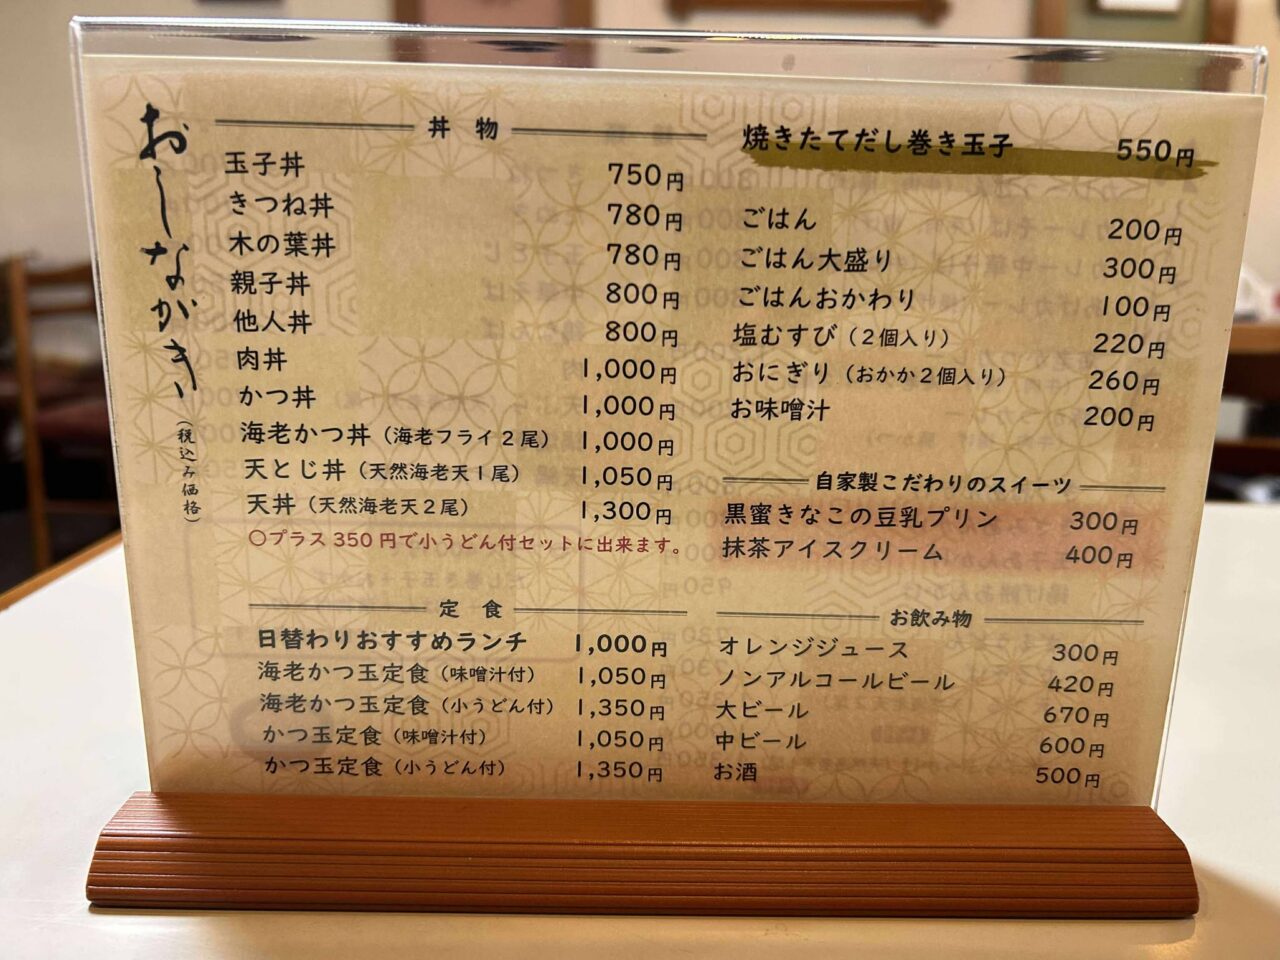 おしながき
(税込み価格)
丼 物
玉子丼 750円
きつね丼 780円
木の葉丼 780円
親子丼 800円
他人丼 800円
肉丼 1,000円
かつ丼 1,000円
海老かつ丼(海老フライ2尾) 1,000円
天とじ丼(天然海老天1尾) 1,050円
天丼(天然海老天2尾) 1,300円
○プラス350円で小うどん付セットに出来ます。
定 食
日替わりおすすめランチ 1,000円
海老かつ玉定食(味噌汁付) 1,050円
海老かつ玉定食(小うどん付) 1,350円
かつ玉定食(味噌汁付) 1,050円
かつ玉定食(小うどん付) 1,350円
焼きたてだし巻き玉子 550円
ごはん 200円
ごはん大盛り 300円
ごはんおかわり 100円
塩むすび(2個入り) 220円
おにぎり(おかか2個入り) 260円
お味噌汁 200円
自家製こだわりのスイーツ
黒蜜きなこの豆乳プリン 300円
抹茶アイスクリーム 400円
お飲み物
オレンジジュース 300円
ノンアルコールビール 420円
大ビール 670円
中ビール 600円
お酒 500円